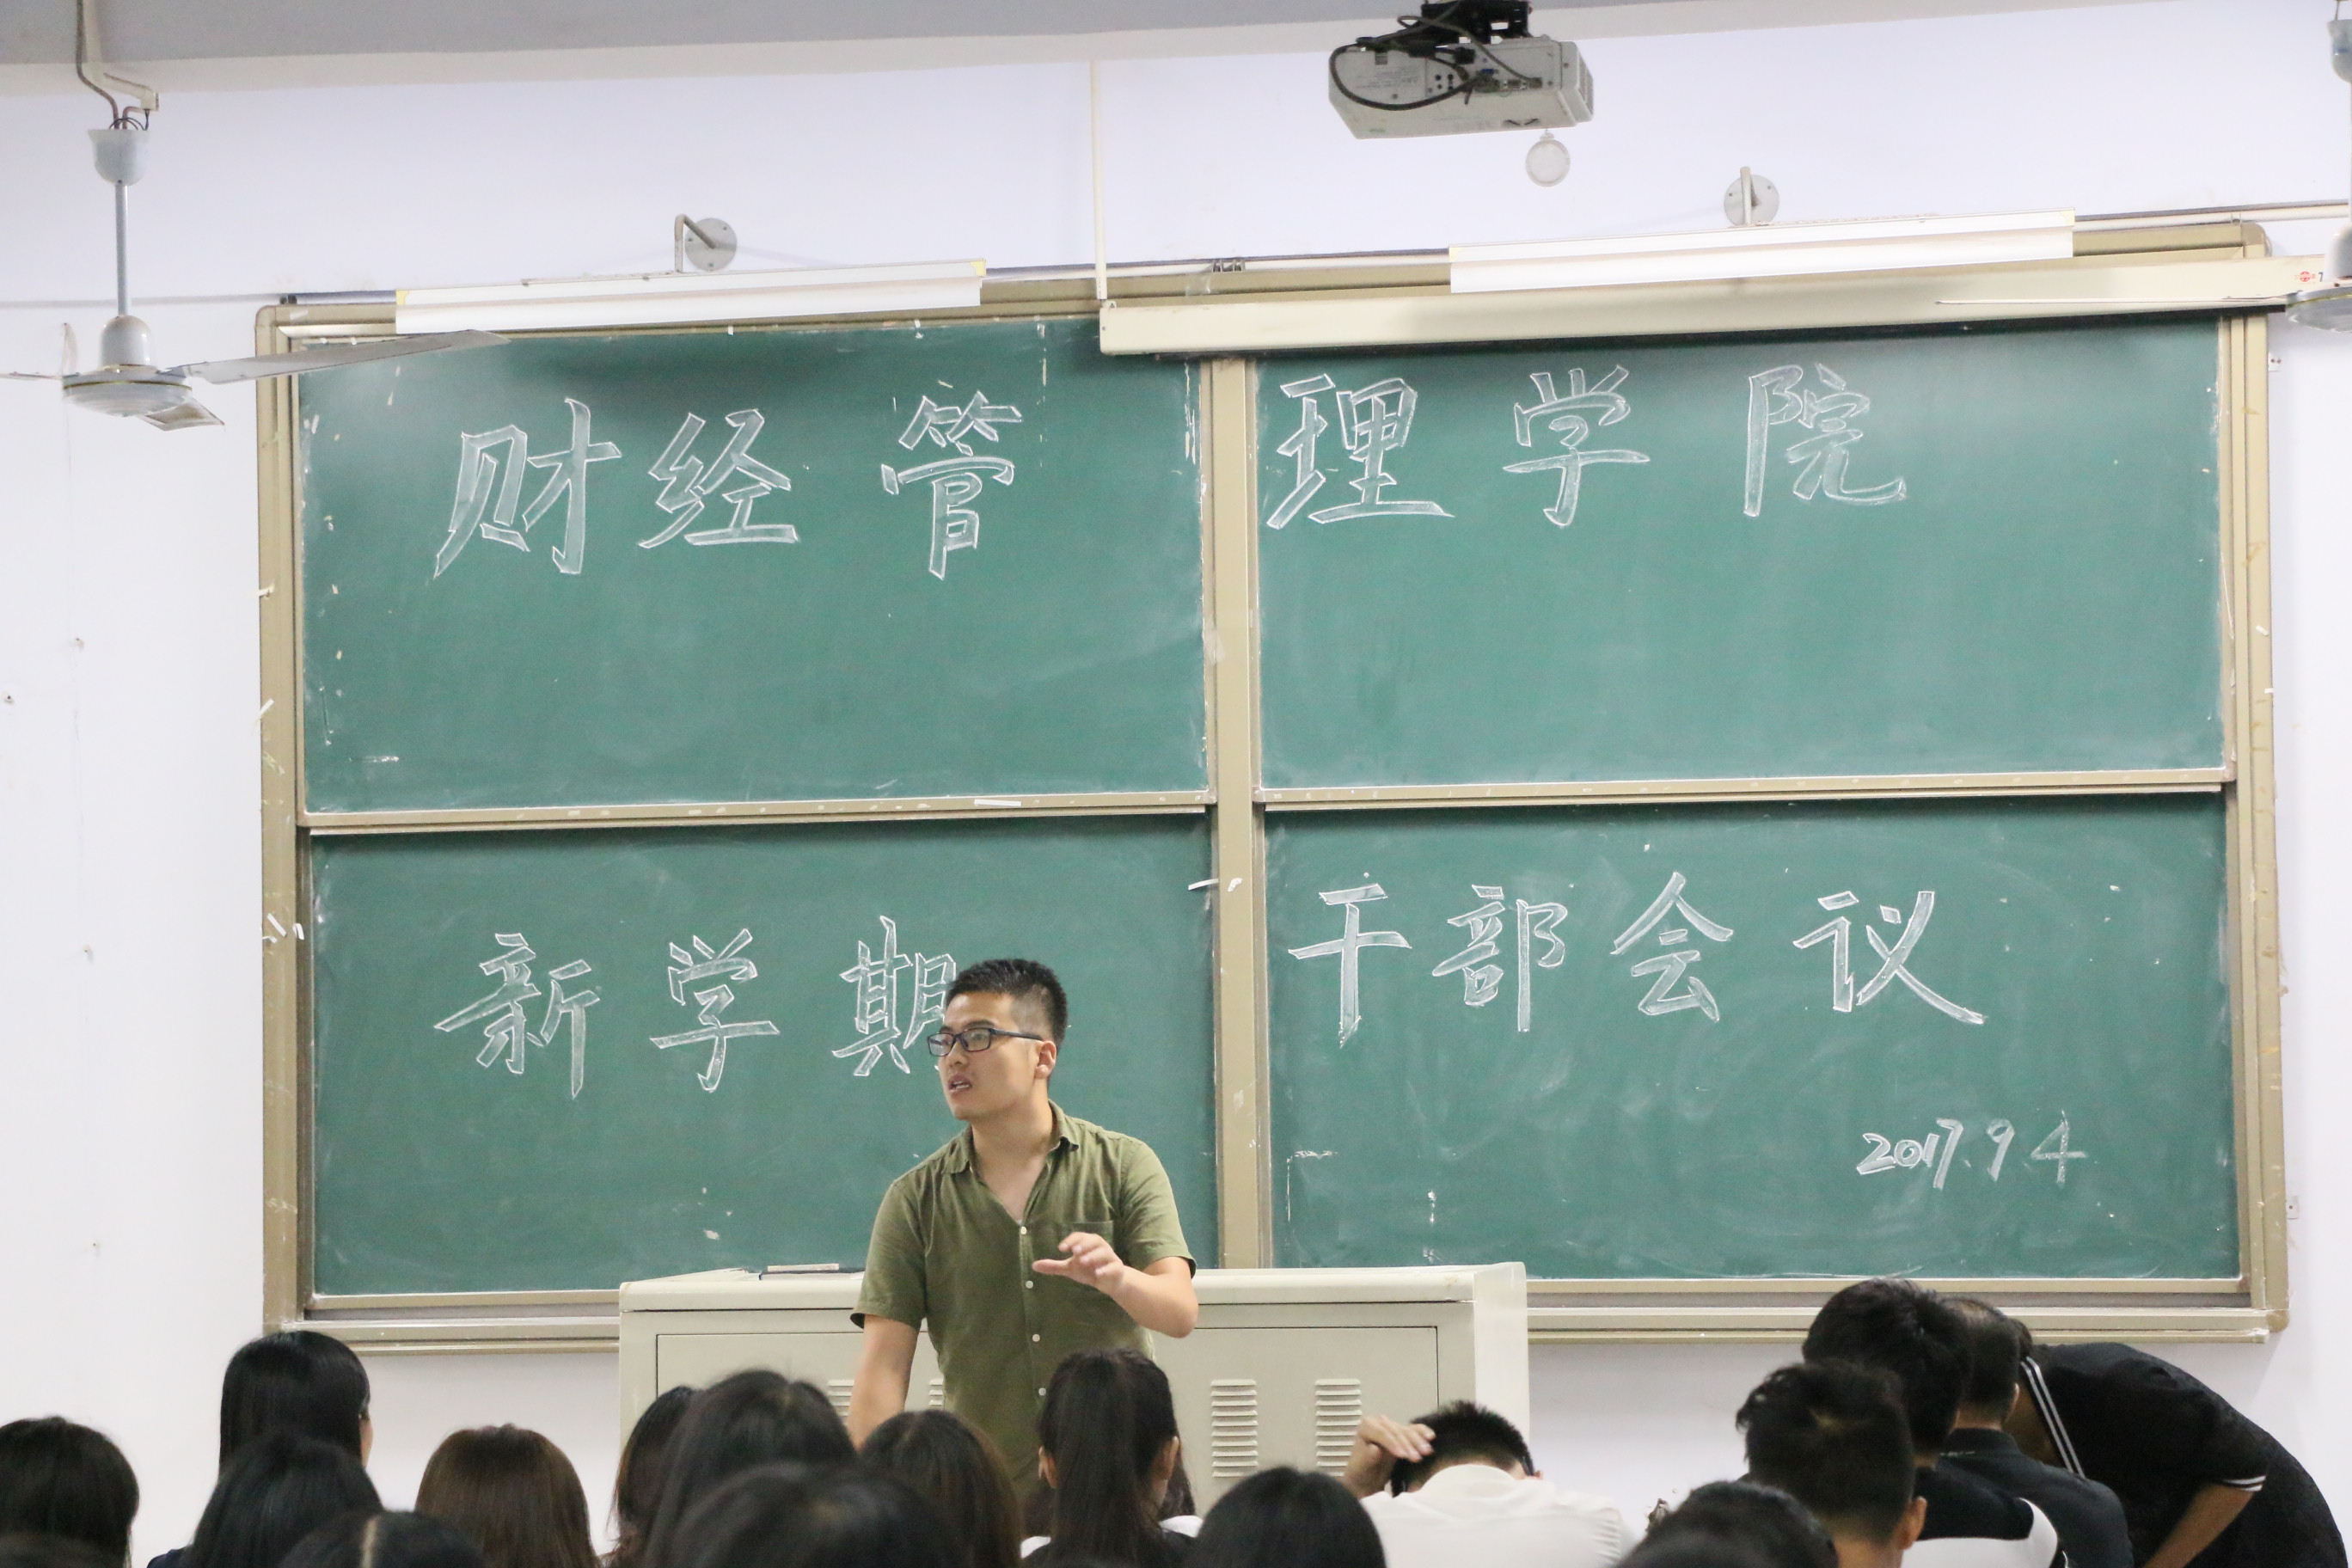 财经管理学院
新学期干部会议
2017.9.4